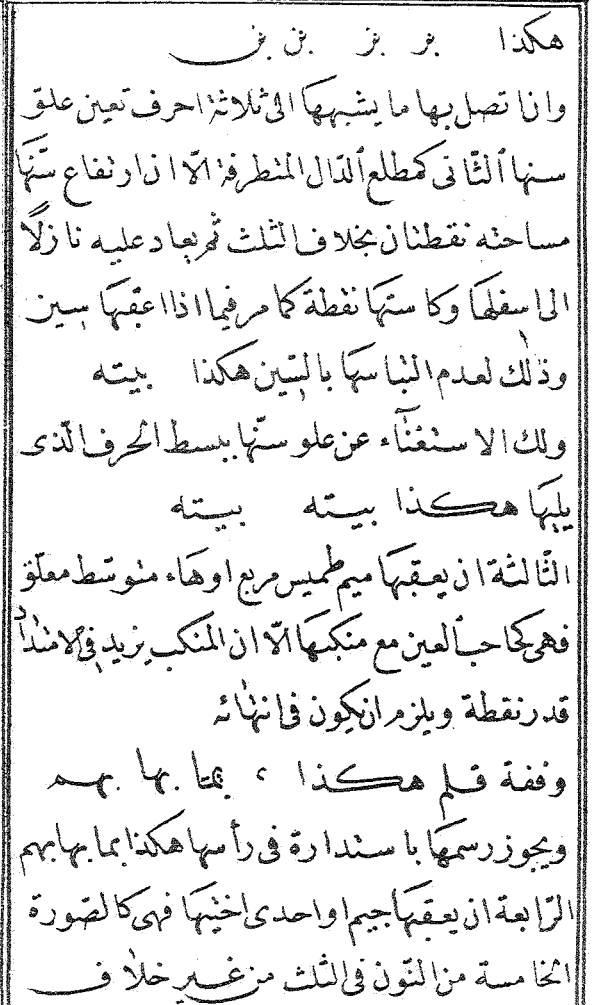 هكذا بر بز بن بى
وان اتصل بها ما يشبهها الى ثلاثة احرف تعين علو
سنها الثانى كمطلع الدال المتطرفة الّا ان ارتفاع سنّها
مساحته نقطتان بخلاف الثلث ثم يعاد عليه نازلًا
الى اسفلها وكاستها نقطة كما مر فيما اذا اعقبها سين
وذلك لعدم التباسها بالسّين هكذا بيته
ولك الاستغنآء عن علو سنّها ببسط الحرف الّذى
يليها هكذا بيته بيته
الثّالثة ان يعقبها ميم طميس مربع او هاء متوسّط معلّق
فهى كحاجب العين مع منكبها الّا ان المنكب يزيد فى الامتداد
قدر نقطة ويلزم ان يكون فى انتهائه
وقفة قلم هكذا ، بما بها بهم
ويجوز رسمها باستدارة فى رأسها هكذا بما بها بهم
الرّابعة ان يعقبها جيم او احدى اختيها فهى كالصّورة
الخامسة من النّون فى الثلث من غير خلاف